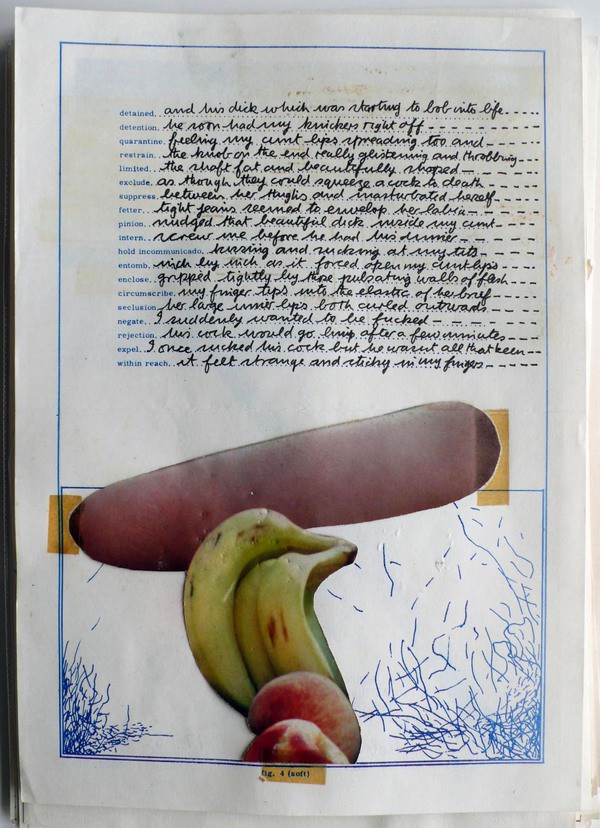 detained. and his dick which was starting to bob into life
detention. he soon had my knickers right off
quarantine. feeling my cunt lips spreading too and
restrain. the knob on the end really glistening and throbbing
limited. the shaft fat and beautifully shaped
exclude. as though they could squeeze a cock to death
suppress. between her thighs and masturbated herself
fetter. tight jeans seemed to envelop her labia
pinion. nudged that beautiful dick inside my cunt
intern. screw me before he had his dinner
hold incommunicado. kissing and sucking at my tits
entomb. inch by inch as it forced open my cunt lips
enclose. gripped tightly by those pulsating walls of flesh
circumscribe. my finger tips into the elastic of her brief
seclusion. her large inner lips both curled outwards
negate. I suddenly wanted to be fucked
rejection. his cock would go limp after a few minutes
expel. I once sucked his cock but he wasnt all that keen
within reach. it felt strange and sticky in my fingers
fig. 4 (soft)